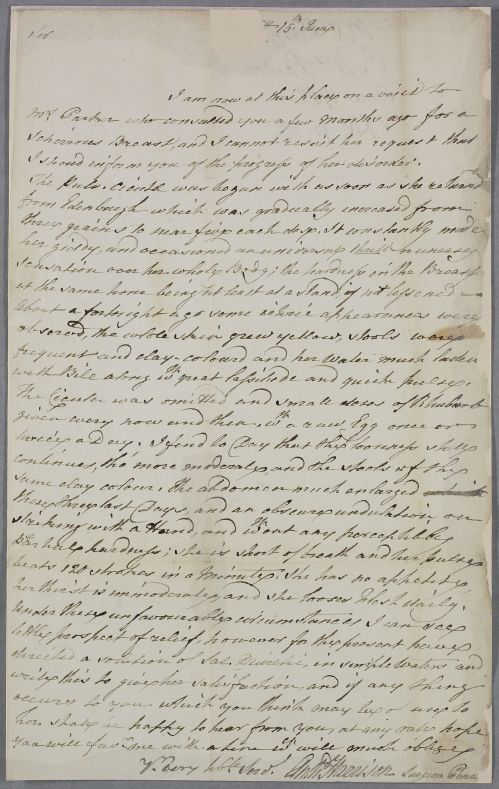 15th June
Sir
I am now at this place on a visit to
Mrs Parker who consulted you a few months ago for a
Schirrous Breast and I cannot resist her request that
I should inform you of the progress of her disorder.
The Pulv. Cicutæ was begun with as soon as she returned
from Edenburgh which was gradually increased from
three grains to near five each dose. It constantly made
her giddy and occasioned an universal thrill uneasy
Sensation over her whole Body; the hardness on the Breast
at the same time being at least at a stand if not lessened
about a fortnight ago some icteric appearances were
observed, the whole skin grew yellow, stools were
frequent and clay-colourd and her water much laden
with Bile along wth great lassitude and quick pulse.
The Cicuta was omitted and small doses of Rhubarb
given every now and then wth a raw Egg once or
twice a day. I find to Day that the looseness still
continues, tho' more moderate and the stools of the
same clay colour. The abdomen much enlarged
these three last Days, and an obscure undulation on
striking with a Hand, and wthout any perceptible
Partial hardness; she is short of breath and her pulse
beats 120 strokes in a Minute. She has no appetite
her thirst is immoderate and she looses flesh daily.
Under these unfavourable circumstances I can see
little prospect of relief, however for the present have
directed a solution of Sal. Diuretic. in simple water and
write this to give her satisfaction, and if any thing
occurs to you which you think may be of use to
her shall be happy to hear from you, at any rate hope
you will favr me with a line wch will much oblige
Yr very hble Servt Harrison Surgeon